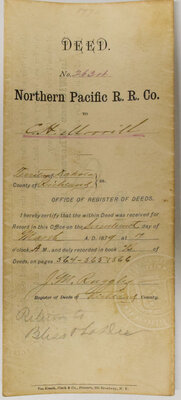 DEED.
No. 2631
Northern Pacific R. R. Co.
TO
C. H. Merrill
Territory Dakota
County of Richland } ss.
OFFICE OF REGISTER OF DEEDS.
I hereby certify that the within Deed was received for
Record in this Office on the Seventeenth day of
March A. D. 1879 at 9
o'clock A M., and duly recorded in book
of
Deeds, on pages 364-365 & 366
J. M. Ruggles
Register of Deeds of Richland County.
Return to